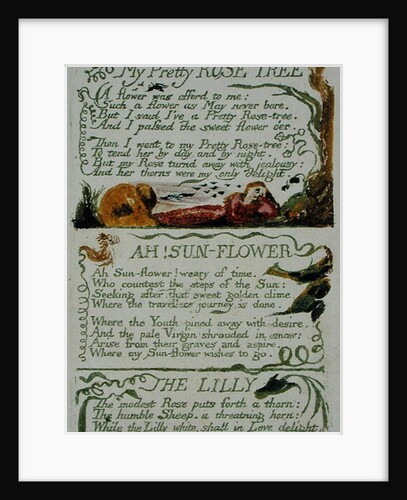 My Pretty ROSE TREE
A flower was offerd to me:
Such a flower as May never bore.
But I said I've a Pretty Rose-tree.
And I passed the sweet flower o'er.
Then I went to my Pretty Rose-tree:
To tend her by day and by night.
But my Rose turnd away with jealousy:
And her thorns were my only delight.
AH! SUN-FLOWER
Ah Sun-flower! weary of time.
Who countest the steps of the Sun:
Seeking after that sweet golden clime
Where the travellers journey is done.
Where the Youth pined away with desire,
And the pale Virgin shrouded in snow:
Arise from their graves and aspire,
Where my Sun-flower wishes to go.
THE LILLY
The modest Rose puts forth a thorn:
The humble Sheep, a threatning horn:
While the Lilly white, shall in Love delight,